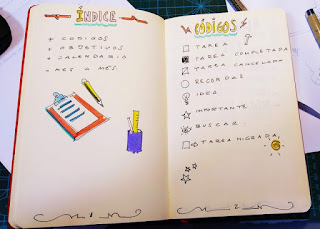 ÍNDICE
+ CODIGOS
+ OBJETIVOS
+ CALENDARIO
- MES A MES
1
CÓDIGOS
TAREA
TAREA COMPLETADA
TAREA CANCELADA
RECORDAR
IDEA
IMPORTANTE
BUSCAR
TAREA MIGRADA
2